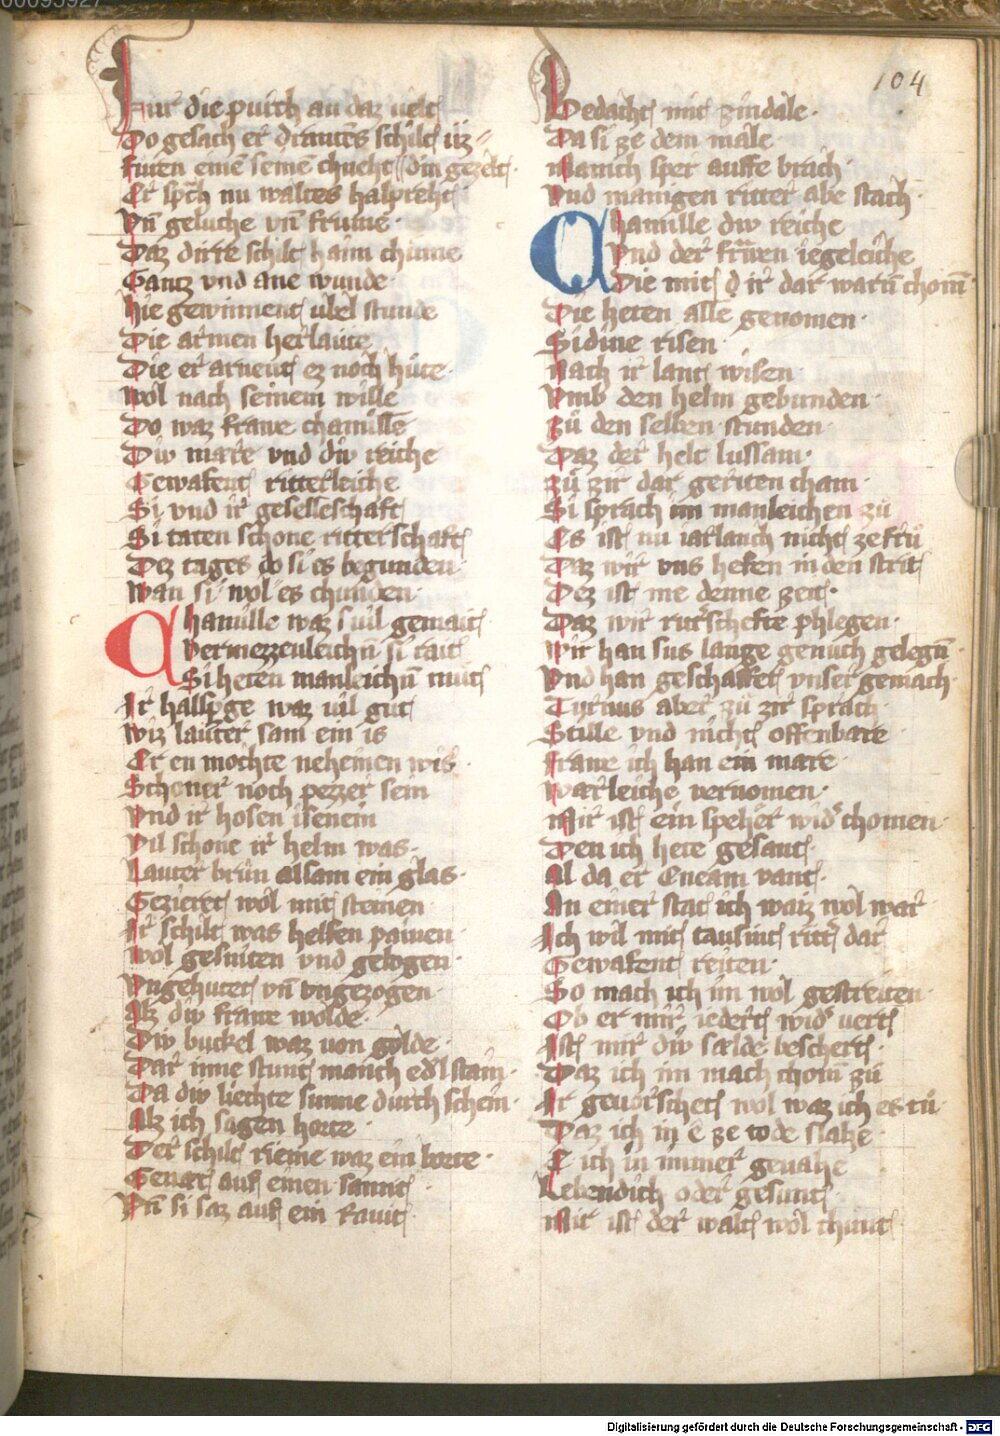 104
Fur die purch an daz velt
Do gesach er drances schilt iiz
furen eine seinē chneht din gezelt.
Er sp̄ch nu waltes halpreht
Vn̄ geluche vn̄ frume
Daz dirre schilt haim chume
Gantz vnd ane wunde
hie gewinnent vbel stunde
Die armen herlaute
Die er arnent ez noch hute.
wol nach seinem wille
Do waz frawe chamille
Diw mare vnd diw reiche
Gewafent ritterleiche
Si vnd ir geselleschaft
Si taten schone ritterschaft
Dez tages do si es begunden
wan si wol es chunden
Chamille waz vil gemait
Vermezzenleichn̄ si rait
Si heten manleichn̄ mut
Ir halsp̄ge waz vil gut
wiz lauter sam ein is
Er en mochte neheinen wis
Schoner noch pezzer sein
Vnd ir hosen isenein
Vil schone ir helm was
Lauter brun alsam ein glas
Gezieret wol mit steinen
Ir schilt was helfen painen
wol gesniten vnd gebogen
Vngehutet vn̄ vngezogen
Alz diw frawe wolde
Diw buckel waz von golde
Dar inne stunt manch edl stain
Da diw liechte sunne durch schein
Alz ich sagen horte
Der schilt rieme waz ein borte
Genat auf einen samit
Vn̄ si saz auf ein ravit
Bedacht mit zindale
Da si ze dem male
Manich sper auffe brach
Vnd manigen ritter abe stach
Chamille diw reiche
Vnd der frawen iegeleiche
Die mit ir dar warn̄ chom̄
Die heten alle genomen
Sidine risen
Nach ir lant wisen
Vmb den helm gebunden
Zu den selben stunden
Daz der helt lussam
zu zir dar geriten cham
Si sprach im manleichen zu
Es ist nu iarlanch nicht ze fru
Daz wir vns heben in den strit
Dez ist me denne zeit
Daz wir rit'schefte phlegen
wir han sus lange genuch gelegn̄
Vnd han geschaffet vnser gemach
Turnus aber zu zir sprach
Stille vnd nicht offenbare
Frawe ich han ein mare
warleiche vernomen
Mir ist ein speher wid' chomen
Den ich hete gesant
Al da er Eneam vant
An einer stat ich waiz wol war
Ich wil mit tausint ritt' dar
Gewafent reiten
So mach ich im wol gestreiten
Ob er mir iedert wid' vert
Ist mir diw sælde beschert
Daz ich im mach chom̄ zu
Ir gevorschet wol waz ich es tu
Daz ich in e ze tode slahe
E ich in immer genahe
Lebendich oder gesunt
Mir ist der walt wol chunt
Digitalisierung gefördert durch die Deutsche Forschungsgemeinschaft - DFG